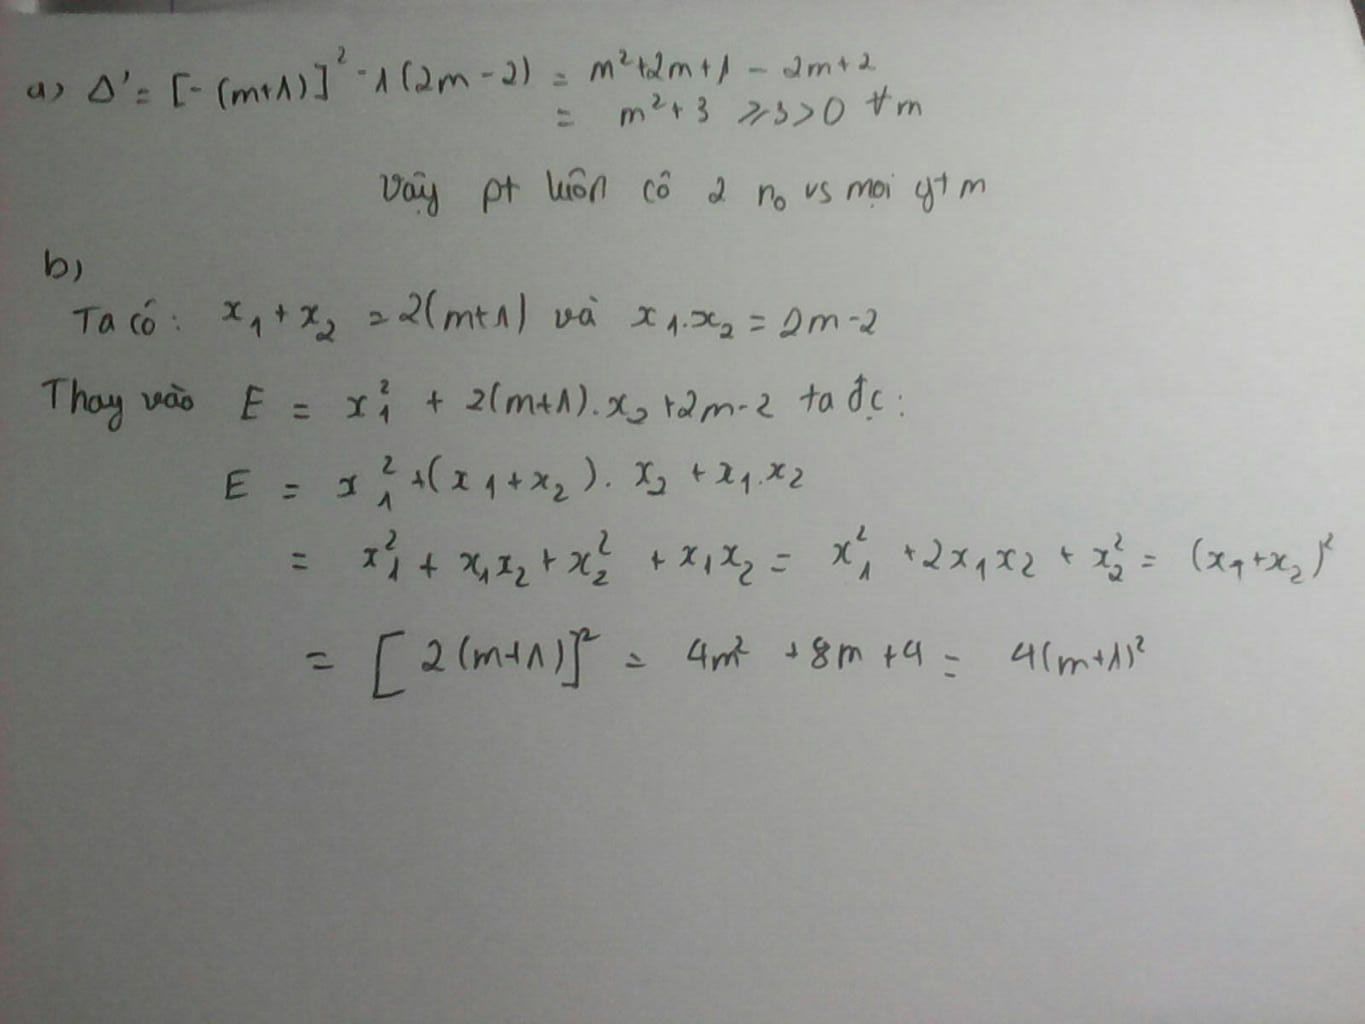 a) Δ' = [-(m+1)]² - 1(2m-2) = m²+2m+1 - 2m+2
= m²+3 ≥3>0 ∀m
Vậy pt luôn có 2 n₀ vs mọi gt m
b)
Ta có: x₁+x₂ = 2(m+1) và x₁.x₂ = 2m-2
Thay vào E = x₁² + 2(m+1).x₂+2m-2 ta đc:
E = x₁²+(x₁+x₂).x₂ + x₁.x₂
= x₁² + x₁x₂ + x₂² + x₁x₂ = x₁² + 2x₁x₂ + x₂² = (x₁+x₂)²
= [2(m+1)]² = 4m² + 8m + 4 = 4(m+1)²